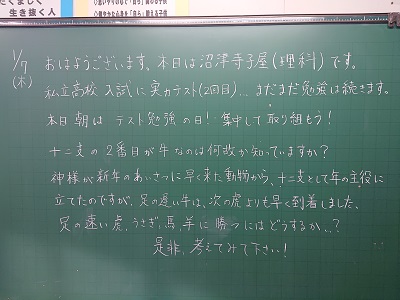 たくましく
生き抜く人
1/7
(木)
おはようございます。本日は沼津寺子屋(理科)です。
私立高校入試に実力テスト(2回目)...まだまだ勉強は続きます。
本日朝はテスト勉強の日!集中して取り組もう!
十二支の2番目が牛なのは何故か知っていますか?
神様が新年のあいさつに早く来た動物から、十二支として年の主役に
立てたのですが、足の遅い牛は、次の虎よりも早く到着しました。
足の速い虎、うさぎ、馬、羊に勝つにはどうするか..?
是非、考えてみて下さい!